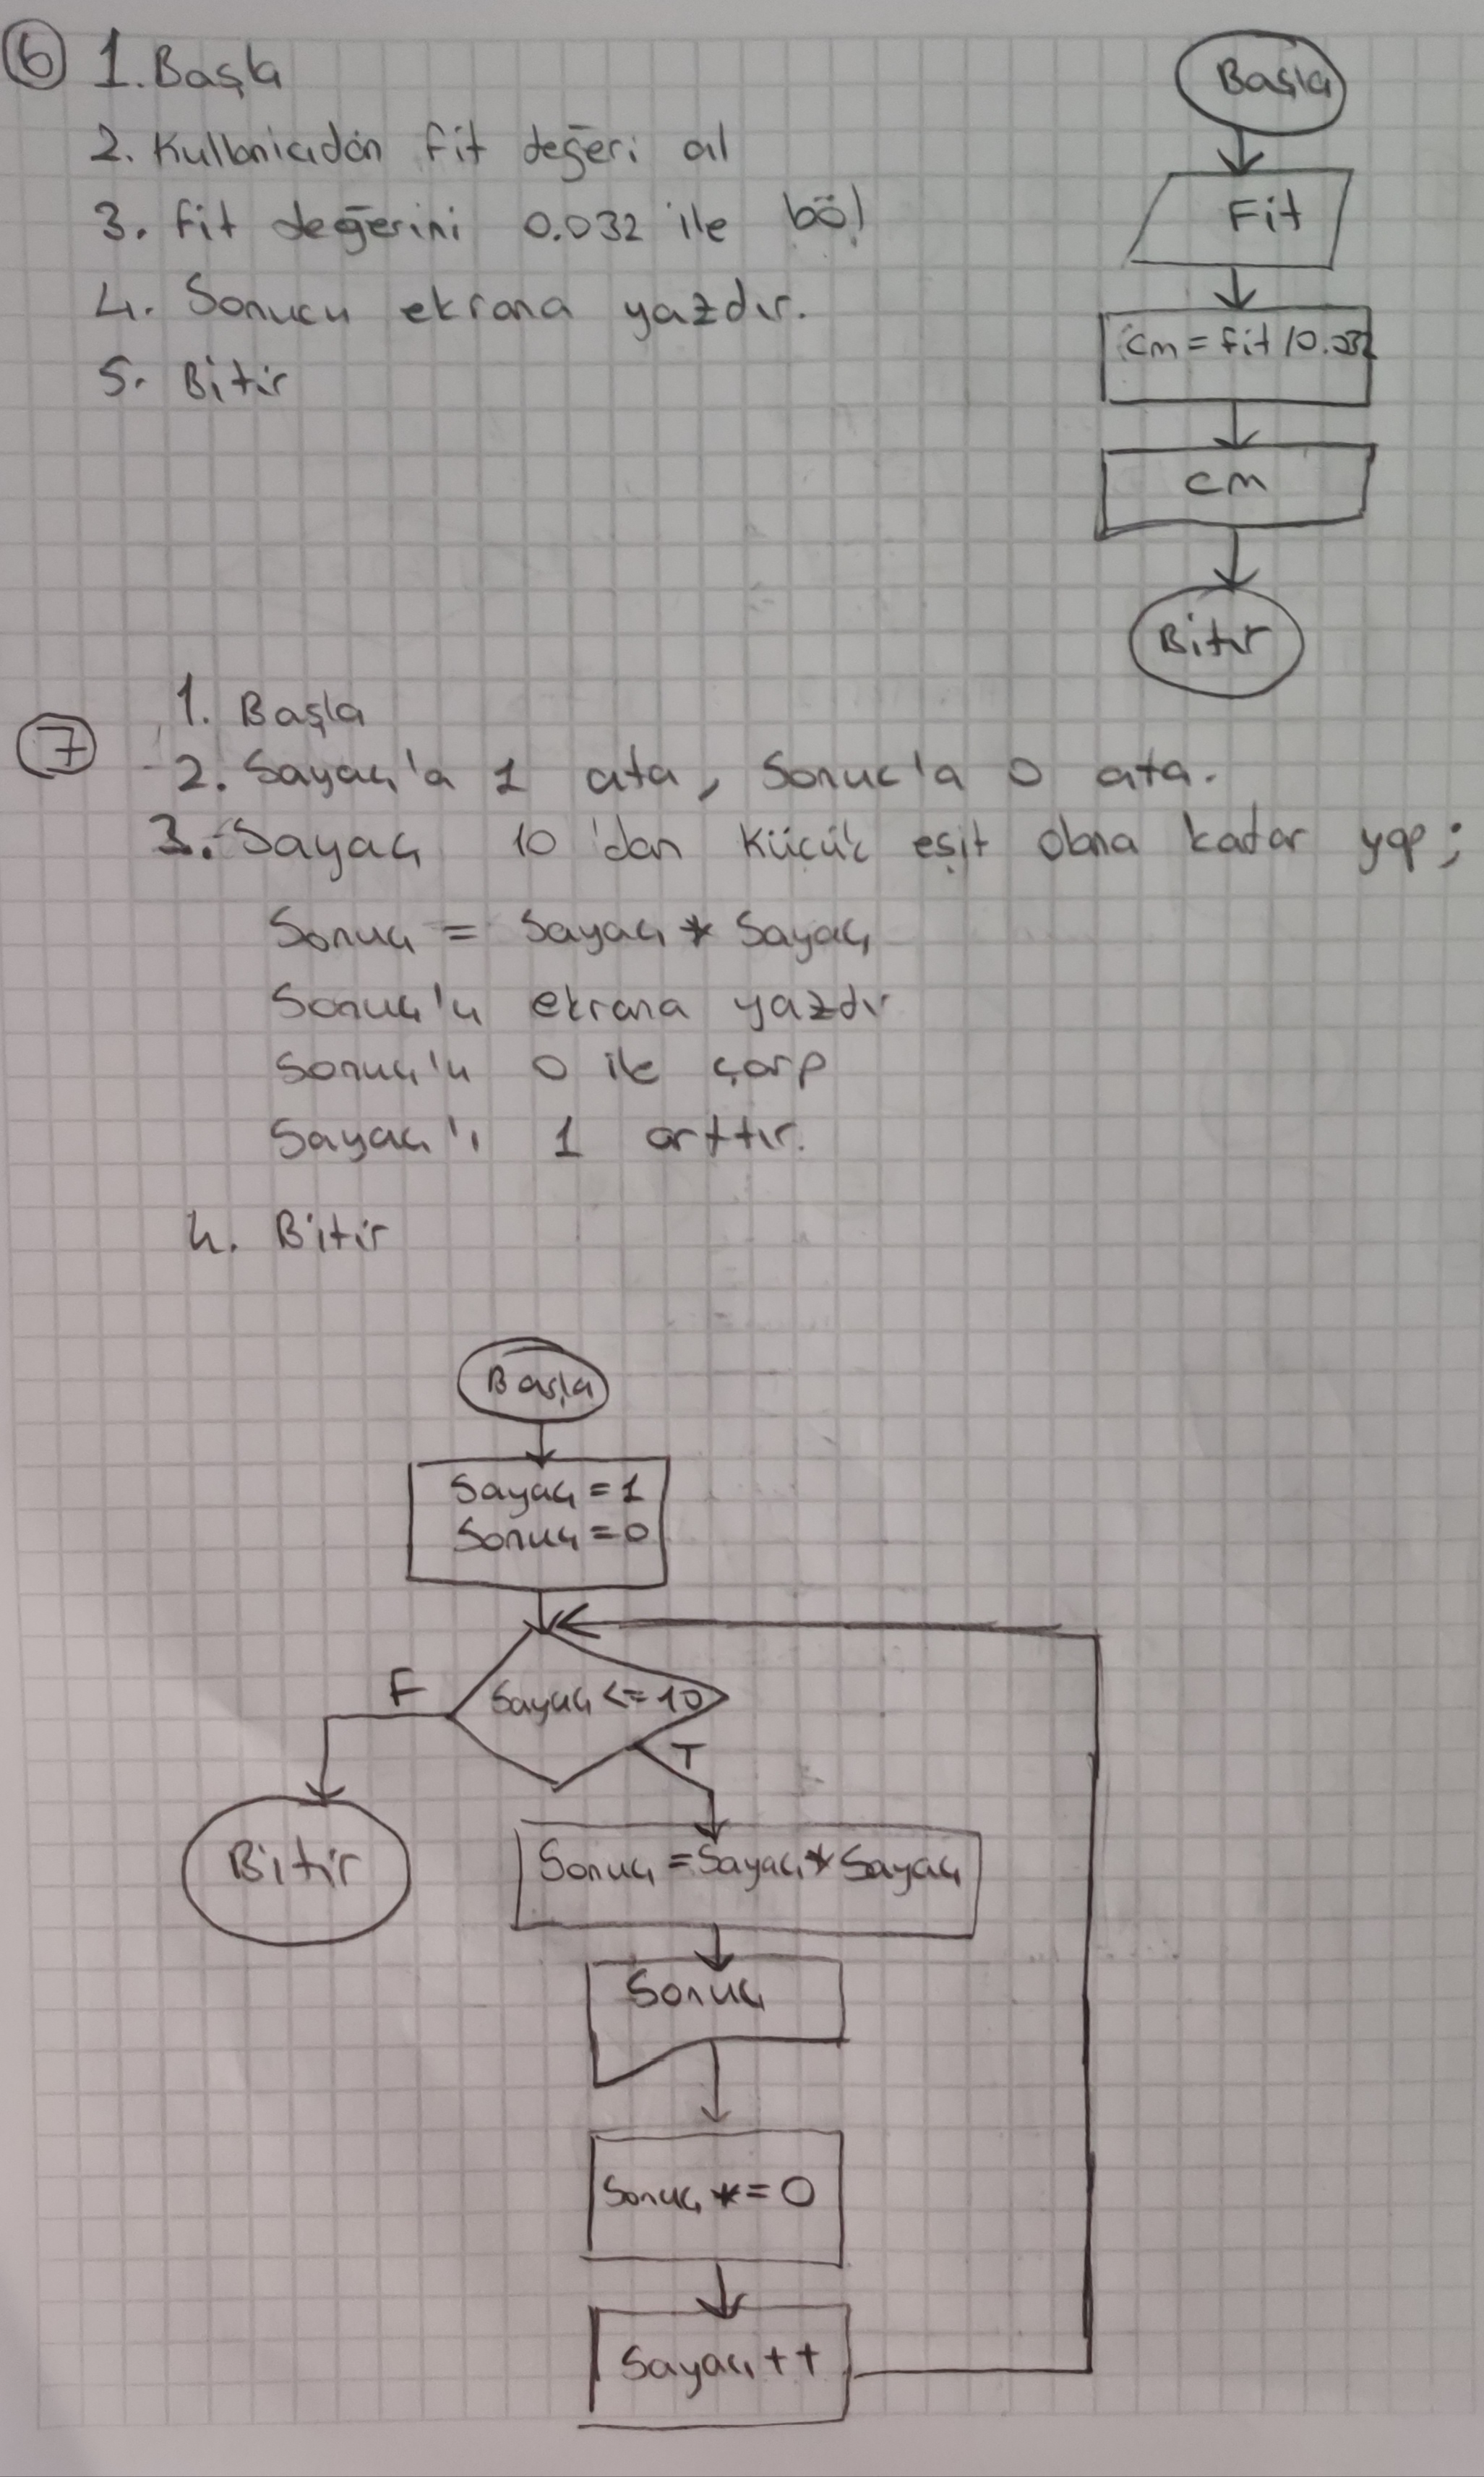 6
1. Başla
2. Kullanıcıdan fit değeri al
3. fit değerini 0.032 ile böl
4. Sonucu ekrana yazdır.
5. Bitir
Başla
Fit
cm = fit / 0.032
cm
Bitir
7
1. Başla
2. Sayaç'a 1 ata, Sonuc'a 0 ata.
3. Sayaç 10'dan küçük eşit olana kadar yap;
Sonuç = Sayaç * Sayaç
Sonuç'u ekrana yazdır
Sonuç'u 0 ile çarp
Sayaç'ı 1 arttır.
4. Bitir
Başla
Sayaç = 1
Sonuç = 0
Sayaç <= 10
F
T
Bitir
Sonuç = Sayaç * Sayaç
Sonuç
Sonuç *= 0
Sayaç ++